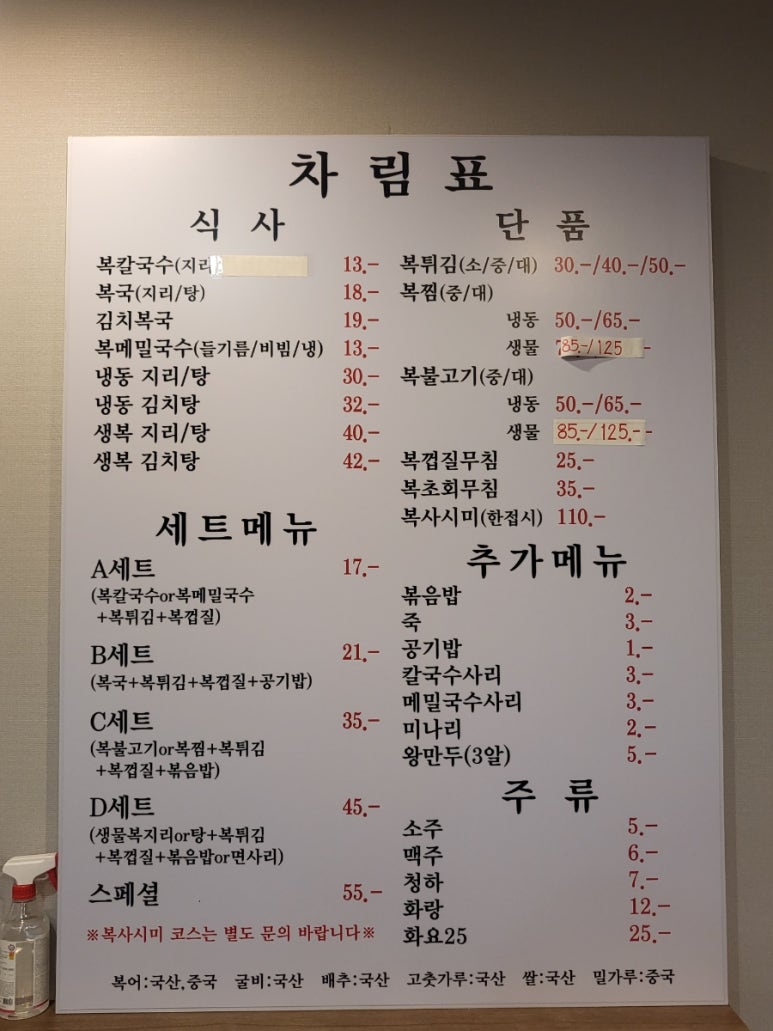 차림표
식사
복칼국수(지리 13.-
복국(지리/탕) 18.-
김치복국 19.-
복메밀국수(들기름/비빔/냉) 13.-
냉동 지리/탕 30.-
냉동 김치탕 32.-
생복 지리/탕 40.-
생복 김치탕 42.-
세트메뉴
A세트 17.-
(복칼국수or복메밀국수
+복튀김+복껍질)
B세트 21.-
(복국+복튀김+복껍질+공기밥)
C세트 35.-
(복불고기or복찜+복튀김
+복껍질+볶음밥)
D세트 45.-
(생물복지리or탕+복튀김
+복껍질+볶음밥or면사리)
스페셜 55.-
※복사시미 코스는 별도 문의 바랍니다※
단품
복튀김(소/중/대) 30.-/40.-/50.-
복찜(중/대)
냉동 50.-/65.-
생물 85.-/125 -
복불고기(중/대)
냉동 50.-/65.-
생물 85.-/125.-
복껍질무침 25.-
복초회무침 35.-
복사시미(한접시) 110.-
추가메뉴
볶음밥 2.-
죽 3.-
공기밥 1.-
칼국수사리 3.-
메밀국수사리 3.-
미나리 2.-
왕만두(3알) 5.-
주류
소주 5.-
맥주 6.-
청하 7.-
화랑 12.-
화요25 25.-
복어:국산,중국 굴비:국산 배추:국산 고춧가루:국산 쌀:국산 밀가루:중국